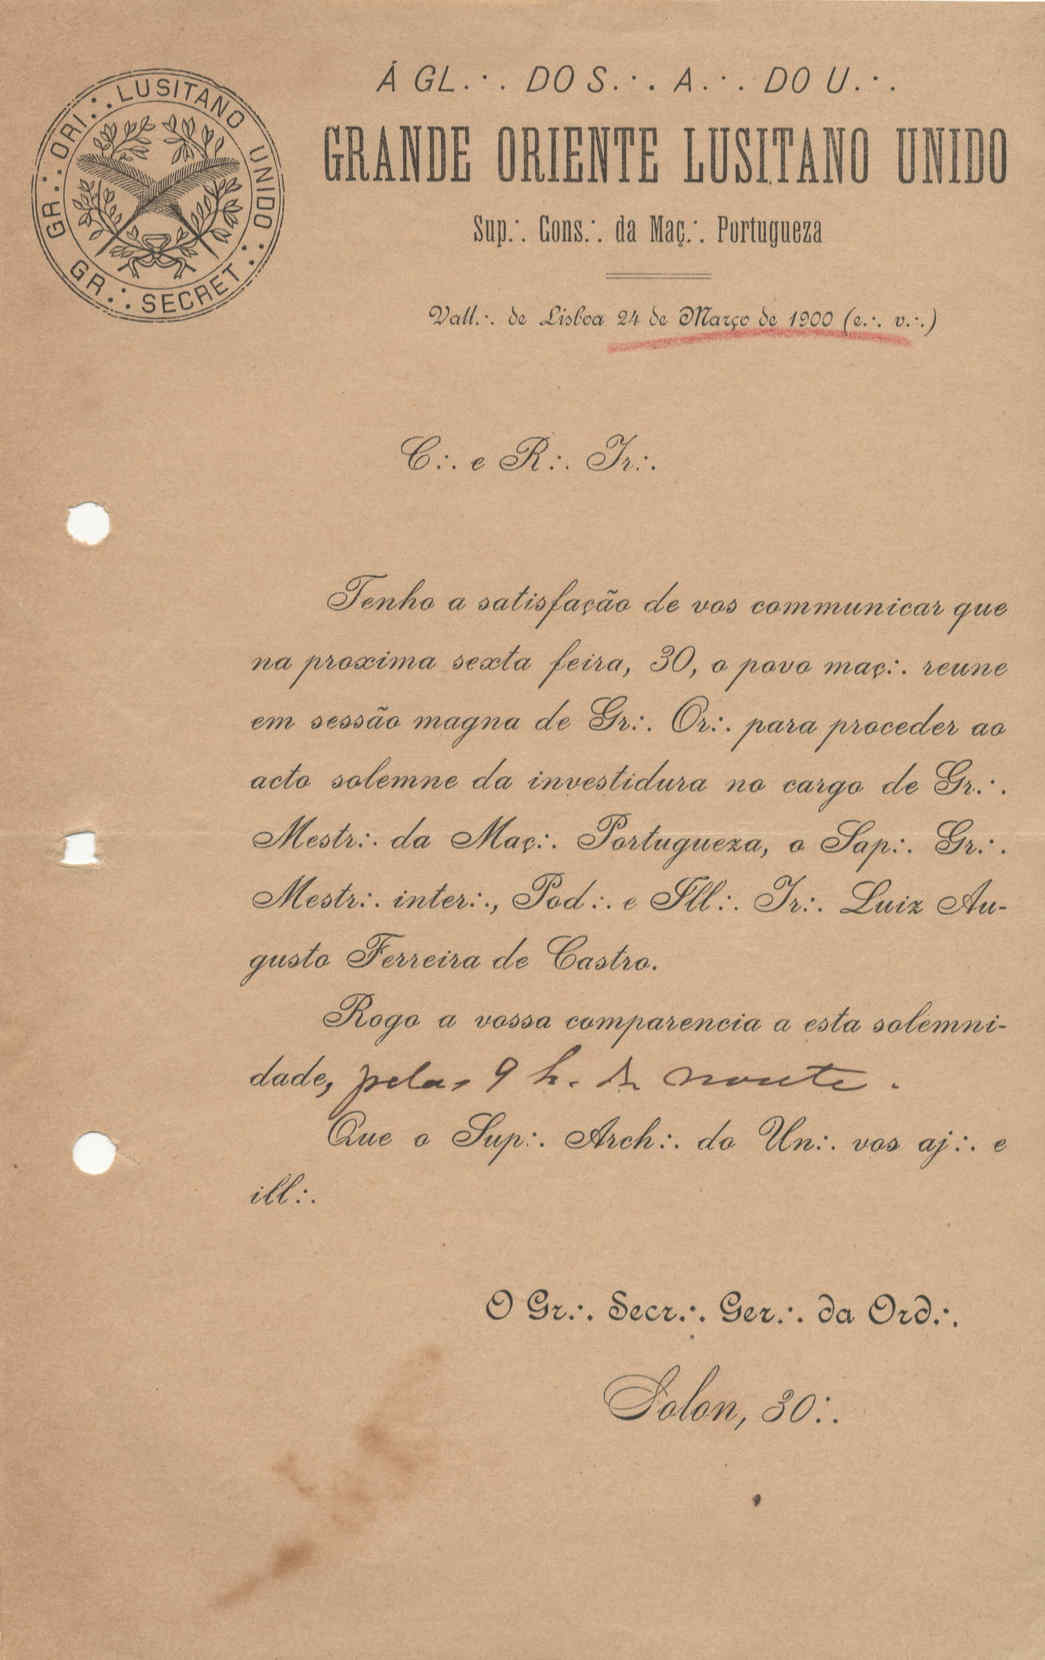 GR∴ ORI∴ LUSITANO UNIDO∴
GR∴ SECRET∴
Á GL∴ DO S∴ A∴ DO U∴
GRANDE ORIENTE LUSITANO UNIDO
Sup∴ Cons∴ da Maç∴ Portugueza
Vall∴ de Lisboa 24 de Março de 1900 (e∴ v∴)
C∴ e R∴ Ir∴
Tenho a satisfação de vos communicar que
na proxima sexta feira, 30, o povo maç∴ reune
em sessão magna de Gr∴ Or∴ para proceder ao
acto solemne da investidura no cargo de Gr∴
Mestr∴ da Maç∴ Portugueza, o Sap∴ Gr∴
Mestr∴ inter∴, Pod∴ e Ill∴ Ir∴ Luiz Au-
gusto Ferreira de Castro.
Rogo a vossa comparencia a esta solemni-
dade, pelas 9 h. da noute.
Que o Sup∴ Arch∴ do Un∴ vos aj∴ e
ill∴
O Gr∴ Secr∴ Ger∴ da Ord∴
Solon, 30∴